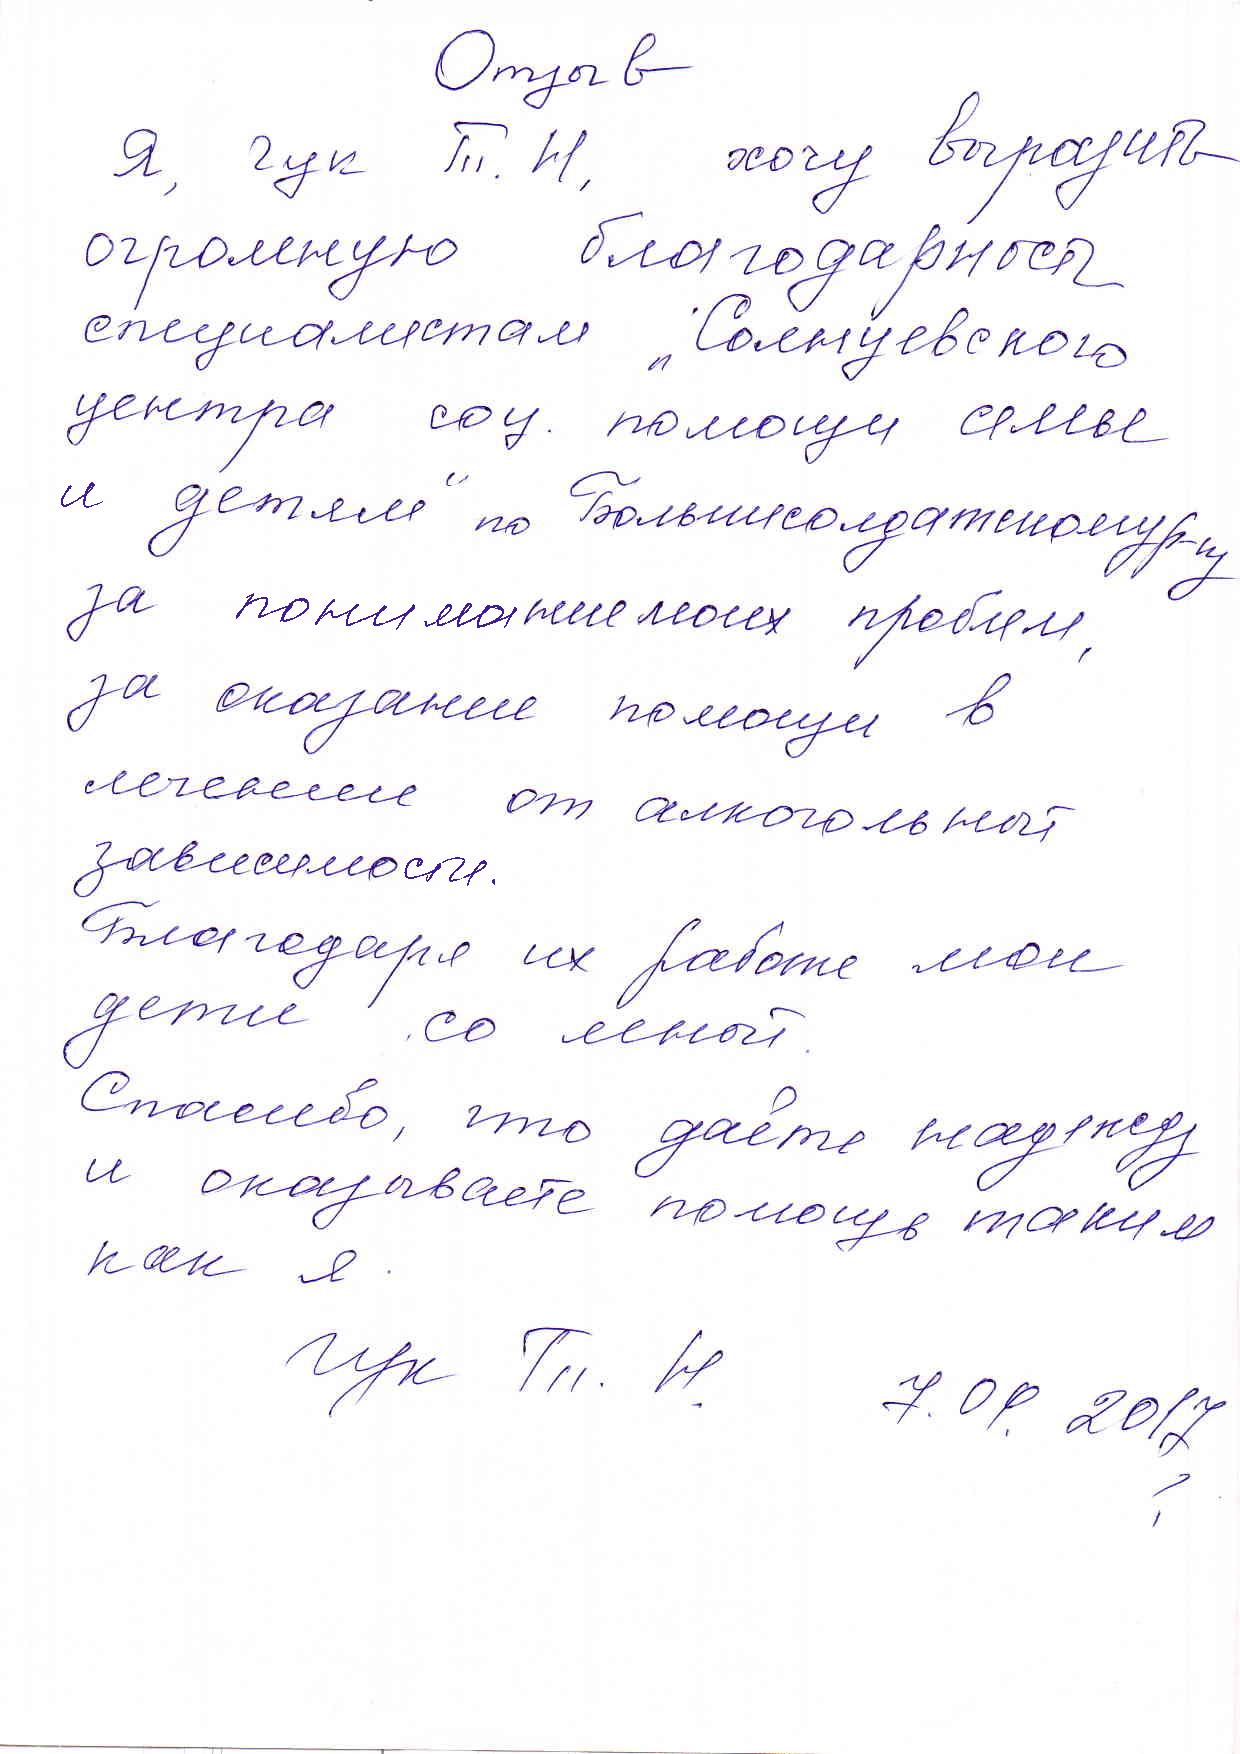 Отзыв
Я, Чук Т. Н, хочу выразить
огромную благодарность
специалистам „Солнцевского
центра соц. помощи семье
и детям“ по Большесолдатскому р-ну
за понимание моих проблем,
за оказание помощи в
лечении от алкогольной
зависимости.
Благодаря их работе мои
дети со мной.
Спасибо, что даёте надежду
и оказываете помощь таким
как я.
Чук Т. Н. 7.09. 2017